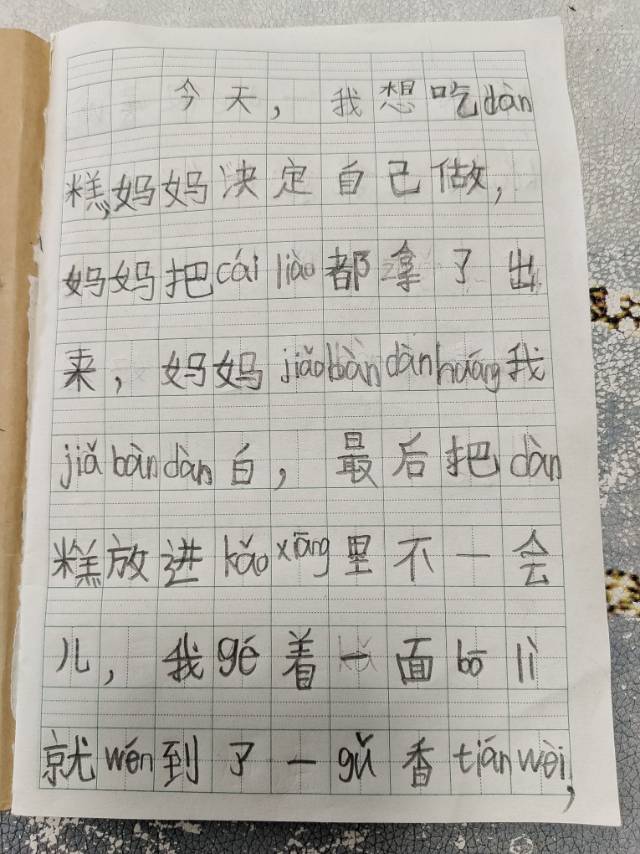 今天，我想吃dàn
糕，妈妈决定自己做，
妈妈把cái liào都拿了出
来，妈妈jiǎobàndànhuáng我
jiǎbàndàn白，最后把dàn
糕放进kǎoxiāng里不一会
儿，我gé着一面bō lì
就wén到了一gǔ香tiánwèi，